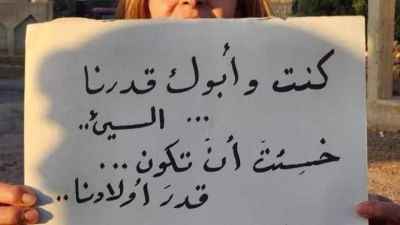 كنت وأبوك قدرنا
... السيئ..
خسِئتَ أنَ تكون...
قدرَ أولادنا..